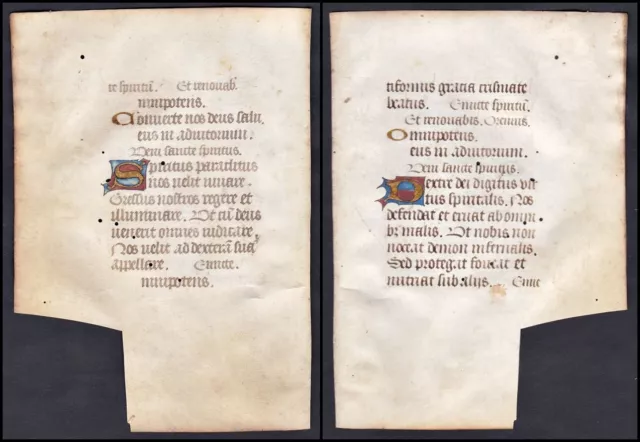 te spiritū. Et renouab̄.
mnipotens.
Conuerte nos deus salu.
eus in adiutorium.
Veni sancte spiritus.
Spiritus paraclitus
nos uelit iuuare.
Gressus nostros regere et
illuminare. Vt cū deus
uenerit omnes iudicare.
Nos uelit ad dexterā suā
appellare. Emitte.
mnipotens.
tiformis gracia crismate
beatus. Emitte spiritū.
Et renouabis. Oremus.
Omnipotens.
eus in adiutorium.
Veni sancte spiritus.
Dextre dei digitus uir
tus spiritalis. Nos
defendat et eruat ab omni
bꝫ malis. Vt nobis non
noceat demon infernalis.
Sed protegat foueat et
nutriat sub alijs. Emitte